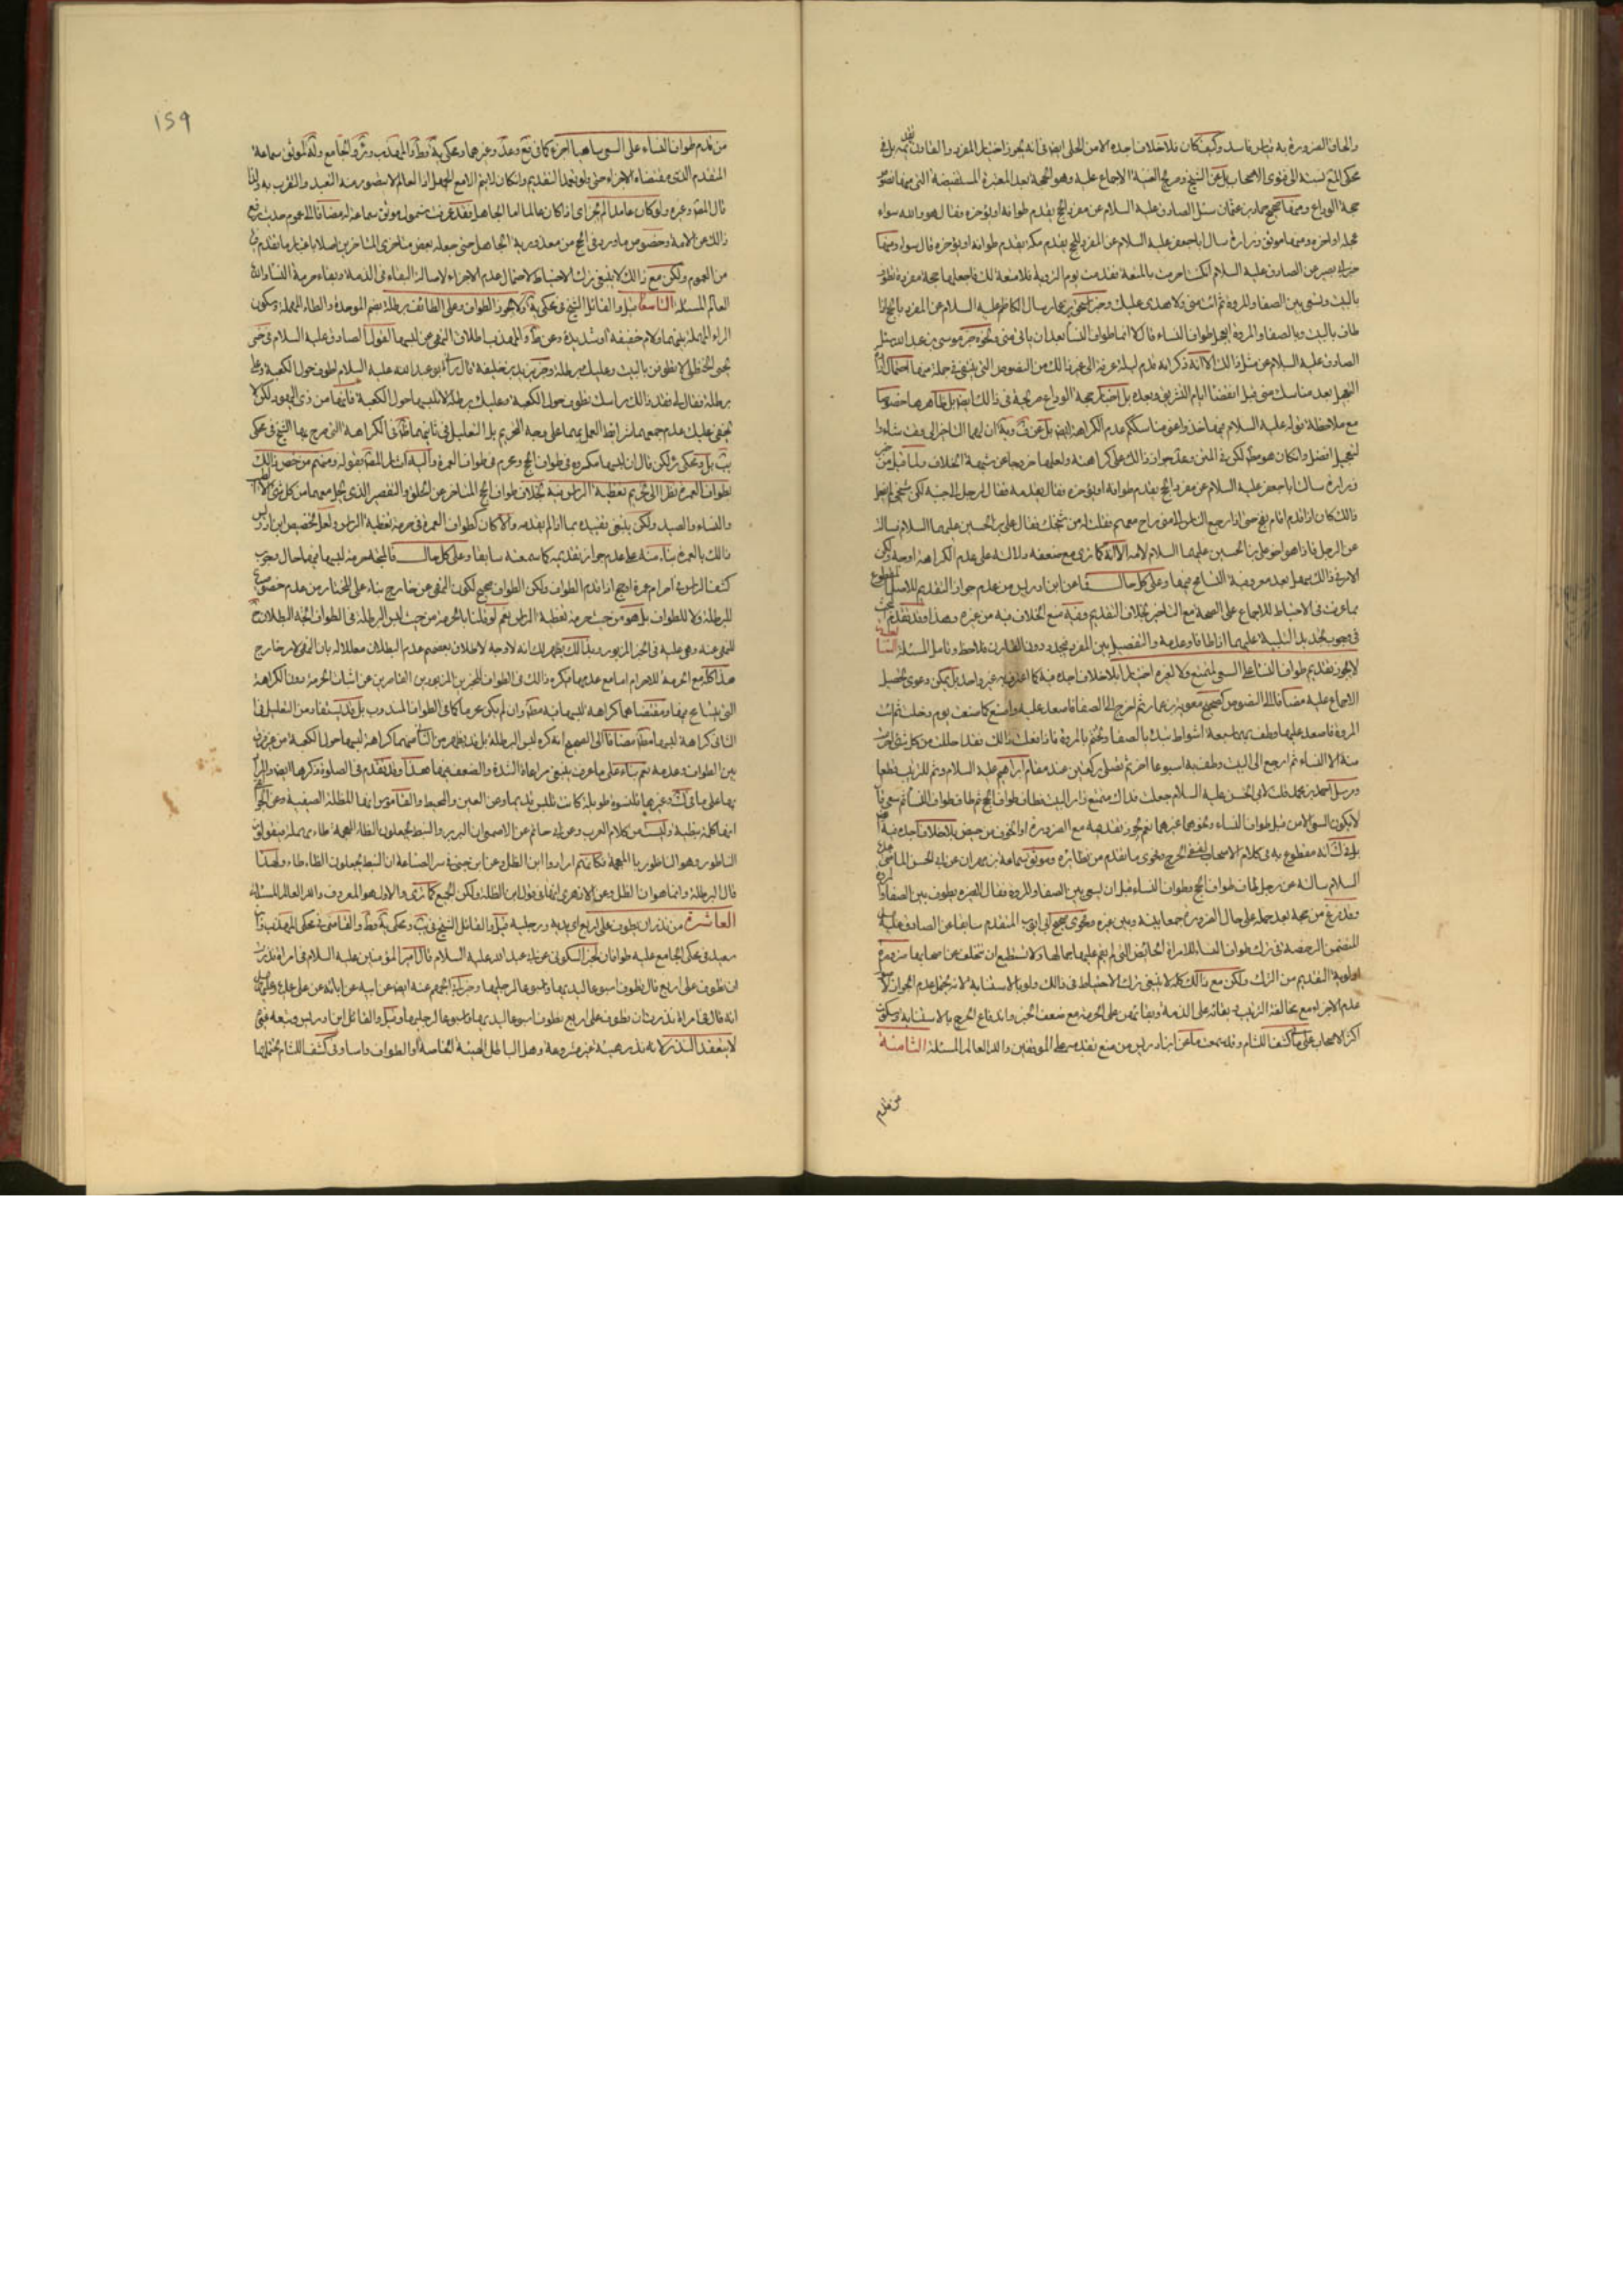 والحاق الضرورة به قياس فاسد وكيف كان فلا خلاف اجده الا من الحلى ايضا فى انه يجوز اختيارا للمفرد والقارن
محكى المنتهى نسبته الى فتوى الاصحاب بل عن الشيخ وصريح الغنية الاجماع عليه وهو الحجة بعد المعتبرة المستفيضة التى منها نصوص
حجة الوداع ومنها صحيح حماد بن عثمان سئل الصادق عليه السلام عن مفرد الحج يقدم طوافه او يؤخره فقال هو والله سواء
عجله او اخره ومنها موثق زرارة سال ابا جعفر عليه السلام عن المفرد للحج يقدم مكة يقدم طوافه او يؤخره قال سواء ومنها
خبر ابى بصير عن الصادق عليه السلام ان كنت احرمت بالمتعة فقدمت يوم التروية فلا متعة لك فاجعلها حجة مفردة تطوف
بالبيت وتسعى بين الصفا والمروة ثم تاتى منى ولا هدى عليك وخبر اسحق بن عمار سال الكاظم عليه السلام عن المفرد بالحج اذا
طاف بالبيت وبالصفا والمروة ايعجل طواف النساء قال لا انما طواف النساء بعد ان ياتى منى ونحوه خبر موسى بن عبد الله سئل
الصادق عليه السلام عن مثل ذلك الا انه ذكر انه قدم ليلة عرفة الى غير ذلك من النصوص التى ينبغى فى جملة منها احتمال
التعجيل بعد مناسك منى قبل انقضاء ايام التشريق وبعده بل اخبار حجة الوداع صريحة فى ذلك ايضا بل ظاهرها خصوصا
مع ملاحظة قوله عليه السلام فيها خذوا عنى مناسككم عدم الكراهة ايضا بل عن
لتعجيل افضل وانكان هو
زرارة سالت ابا جعفر عليه السلام عن مفرد الحج يقدم طوافه او يؤخره فقال يقدمه فقال رجل الى جنبه لكن شيخى لم يفعل
ذلك كان اذا قدم اقام بفخ حتى اذا رجع الناس الى منى راح معهم فقلت له من شيخك فقال على بن الحسين عليهما السلام فسالت
عن الرجل فاذا هو اخو على بن الحسين عليهما السلام لامه الا انه كما ترى مع ضعفه دلالته على عدم الكراهة اوجه ولكن
الامر فى ذلك سهل بعد معروفية التسامح فيها وعلى كل حال فما عن ابن ادريس من عدم جواز التقديم للاصل
بما عرفت فى الاحتياط للاجماع على الصحة مع التاخير بخلاف التقديم وفيه منع الخلاف فيه من غيره وهذا وقد تقدم
فى وجوب تجديد التلبية عليهما اذا طافا وعدمه والتفصيل بين المفرد فيجدد دون القارن فلاحظ وتامل المسئلة السابعة
لا يجوز تقديم طواف النساء على السعى لمتمتع ولا لغيره اختيارا بلا خلاف اجده فيه كما اعترف به غير واحد بل يمكن دعوى تحصيل
الاجماع عليه مضافا الى النصوص كصحيح معوية بن عمار ثم اخرج الى الصفا فاصعد عليه واصنع كما صنعت يوم دخلت ثم ائت
المروة فاصعد عليها وطف بهما سبعة اشواط تبدء بالصفا وتختم بالمروة فاذا فعلت ذلك فقد احللت من كل شئ احرمت
منه الا النساء ثم ارجع الى البيت وطف به اسبوعا اخر ثم تصلى ركعتين عند مقام ابراهيم عليه السلام وثم للترتيب قطعا
ومرسل احمد بن محمد قلت لابى الحسن عليه السلام جعلت فداك متمتع زار البيت فطاف طواف الحج ثم طاف طواف النساء ثم سعى قال
لا يكون السعى الا من قبل طواف النساء ونحوهما غيرهما نعم يجوز تقديمه مع الضرورة او الخوف من حيض بلا خلاف اجده فيه
بل فى كشف انه مقطوع به فى كلام الاصحاب لنفى الحرج وفحوى ما تقدم من نظائره وموثق سماعة بن مهران عن ابى الحسن الماضى عليه
السلام سالته عن رجل طاف طواف الحج وطواف النساء قبل ان يسعى بين الصفا والمروة فقال لا يضره يطوف بين الصفا والمروة
وقد فرغ من حجه بعد حمله على حال الضرورة جمعا بينه وبين غيره وفحوى صحيح ابى ايوب المتقدم سابقا عن الصادق عليه
المتضمن الرخصة فى ترك طواف النساء للامراة الحائض التى لم يقم عليها جمالها ولا تستطيع ان تتخلف عن اصحابها ضرورة
اولوية التقديم من الترك ولكن مع ذلك كله لا ينبغى ترك الاحتياط فى ذلك ولو بالاستنابة لانه يحتمل عدم الجواز
عدم الاجزاء مع مخالفة الترتيب وبقائه على الذمة وبقائهن على الحرمة مع ضعف الخبر واندفاع الحرج بالاستنابة وسكوت
اكثر الاصحاب على ما فى كشف اللثام وقد سمعت ما عن ابن ادريس من منع تقديمه على الموقفين والله العالم المسئلة الثامنة
من قدم
١٥٩
من قدم طواف النساء على السعى ساهيا اجزءه كما فى فع وعد وغيرهما ومحكى يه وط والمهذب وئر والجامع ولة لموثق سماعة
المتقدم الذى مقتضاه الاجزاء حتى ولو تعمد التقديم وانكان لا يتم الا مع الجهل اذ العالم لا يتصور منه التعبد والتقرب به ولذا
قال المصنف وغيره ولو كان عامدا لم يجز اى اذا كان عالما اما الجاهل فقد عرفت شمول موثق سماعة له مضافا الى عموم حديث رفع
ذلك عن الامة وخصوص ما ورد فى الحج من معذورية الجاهل حتى جعله بعض متاخرى المتاخرين اصلا باعتبار ما تقدم فى
من العموم ولكن مع ذلك لا ينبغى ترك الاحتياط لاحتمال عدم الاجزاء لاصالة البقاء فى الذمة وبقاء حرمة النساء والله
العالم المسئلة التاسعة قيل والقائل الشيخ فى محكى يه لا يجوز الطواف وعلى الطائف برطلة بضم الموحدة والطاء المهملة وسكون
الراء المهملة بينهما ولام خفيفة او شديدة وعن ط والمهذب اطلاق النهى عن لبسها لقول الصادق عليه السلام فى خبر
يحيى الحنظلى لا تطوفن بالبيت وعليك برطلة وخبر يزيد بن خليفة قال رآنى ابو عبد الله عليه السلام اطوف حول الكعبة وعلى
برطلة فقال لى بعد ذلك رايتك تطوف حول الكعبة وعليك برطلة لا تلبسها حول الكعبة فانها من زى اليهود لكن لا
يخفى عليك عدم جمعهما شرائط العمل بهما على وجه التحريم بل التعليل فى ثانيهما ظاهر فى الكراهة التى صرح بها الشيخ فى محكى
يب بل ومحكى ئر لكن قال ان لبسها مكروه فى طواف الحج ومحرم فى طواف العمرة واليه اشار المصنف بقوله ومنهم من خص ذلك
بطواف العمرة نظرا الى تحريم تغطية الراس فيه بخلاف طواف الحج المتاخر عن الحلق والتقصير الذى يحل معهما من كل شئ الا
والنساء والصيد ولكن ينبغى تقييده بما اذا لم يقدمه والا كان كطواف العمرة فى حرمة تغطية الراس ولعل تخصيص ابن ادريس
ذلك بالعمرة بناء منه على عدم جواز تقديمه كما سمعته سابقا وعلى كل حال فالمتجه حرمة لبسها فيها حال وجوب
كشف الراس فى احرام عمرة او حج اذا قدم الطواف ولكن الطواف صحيح لكون النهى عن خارج بناء على المختار من عدم خصوص
للبرطلة ولا للطواف بل هو من حيث حرمة تغطية الراس نعم لو قلنا بالحرمة من حيث لبس البرطلة فى الطواف اتجه البطلان
للنهى عنه وهى عليه فى الخبر المزبور وبذلك يظهر لك انه لا وجه لاطلاق بعضهم عدم البطلان معللا له بان النهى لامر خارج
هذا كله مع الحرمة للاحرام اما مع عدمها فيكره ذلك فى الطواف للخبرين المزبورين القاصرين عن اثبات الحرمة دون الكراهة
التى يتسامح فيها ومقتضاهما كراهة لبسها فيه مطلقا وان لم يكن محرما كما فى الطواف المندوب بل قد يستفاد من التعليل فى
الثانى كراهة لبسها مطلقا مضافا الى الصحيح انه كره لبس البرطلة بل قد يظهر من الثانى منهما كراهة لبسها حول الكعبة من غير فرق
بين الطواف وعدمه نعم بناء على ما عرفت ينبغى مراعاة الشدة والضعف فيها هذا وقد تقدم فى الصلوة ذكرها ايضا والمراد
بها على ما فى كشف وغيرها قلنسوة طويلة كانت تلبس قديما وعن العين والمحيط والقاموس انها المظلة الصيفية وعن الجوهرى
انها كلمة نبطية وليست من كلام العرب وعن ابى حاتم عن الاصمعى ان البربر والنبط يجعلون الظاء المعجمة طاء مهملة فيقولون
الناطور وهو الناظور بالمعجمة فكانهم ارادوا ابن الظل وعن ابن جنى فى سر الصناعة ان النبط يجعلون الظاء طاء ولهذا
قالوا البرطلة وانما هو ابن الظل وعن الازهرى انها فى قول ابن الظلة ولكن الجميع كما ترى والاول هو المعروف والله العالم المسئلة
العاشرة من نذر ان يطوف على اربع اى يديه ورجليه قيل والقائل الشيخ فى يب ومحكى يه وط والقاضى فى محكى المهذب وابن
سعيد فى محكى الجامع عليه طوافان لخبر السكونى عن ابى عبد الله عليه السلام قال امير المؤمنين عليه السلام فى امراة نذرت
ان تطوف على اربع قال تطوف اسبوعا ليديها واسبوعا لرجليها وخبر ابى الجهم عنه ايضا عن ابيه عن ابائه عن على
انه قال فى امراة نذرت ان تطوف على اربع تطوف اسبوعا ليديها واسبوعا لرجليها وقيل والقائل ابن ادريس وتبعه غيره
لا ينعقد النذر لانه نذر هيئة غير مشروعة وهل الباطل الهيئة الخاصة او الطواف راسا وفى كشف اللثام يحتملهما